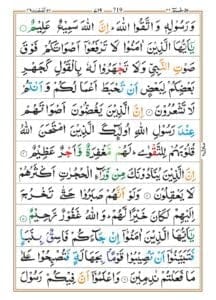 ۷۱۹
وَرَسُوْلِهٖ وَاتَّقُوا اللّٰهَ ؕ اِنَّ اللّٰهَ سَمِيْعٌ عَلِيْمٌ
يٰۤاَيُّهَا الَّذِيْنَ اٰمَنُوْا لَا تَرْفَعُوْۤا اَصْوَاتَكُمْ فَوْقَ
صَوْتِ النَّبِيِّ وَلَا تَجْهَرُوْا لَهٗ بِالْقَوْلِ كَجَهْرِ
بَعْضِكُمْ لِبَعْضٍ اَنْ تَحْبَطَ اَعْمَالُكُمْ وَاَنْتُمْ
لَا تَشْعُرُوْنَ اِنَّ الَّذِيْنَ يَغُضُّوْنَ اَصْوَاتَهُمْ
عِنْدَ رَسُوْلِ اللّٰهِ اُولٰٓئِكَ الَّذِيْنَ امْتَحَنَ اللّٰهُ
قُلُوْبَهُمْ لِلتَّقْوٰى ؕ لَهُمْ مَّغْفِرَةٌ وَّاَجْرٌ عَظِيْمٌ
اِنَّ الَّذِيْنَ يُنَادُوْنَكَ مِنْ وَّرَآءِ الْحُجُرٰتِ اَكْثَرُهُمْ
لَا يَعْقِلُوْنَ وَلَوْ اَنَّهُمْ صَبَرُوْا حَتّٰى تَخْرُجَ
اِلَيْهِمْ لَكَانَ خَيْرًا لَّهُمْ ؕ وَاللّٰهُ غَفُوْرٌ رَّحِيْمٌ
يٰۤاَيُّهَا الَّذِيْنَ اٰمَنُوْۤا اِنْ جَآءَكُمْ فَاسِقٌۢ بِنَبَاٍ
فَتَبَيَّنُوْۤا اَنْ تُصِيْبُوْا قَوْمًۢا بِجَهَالَةٍ فَتُصْبِحُوْا عَلٰى
مَا فَعَلْتُمْ نٰدِمِيْنَ وَاعْلَمُوْۤا اَنَّ فِيْكُمْ رَسُوْلَ